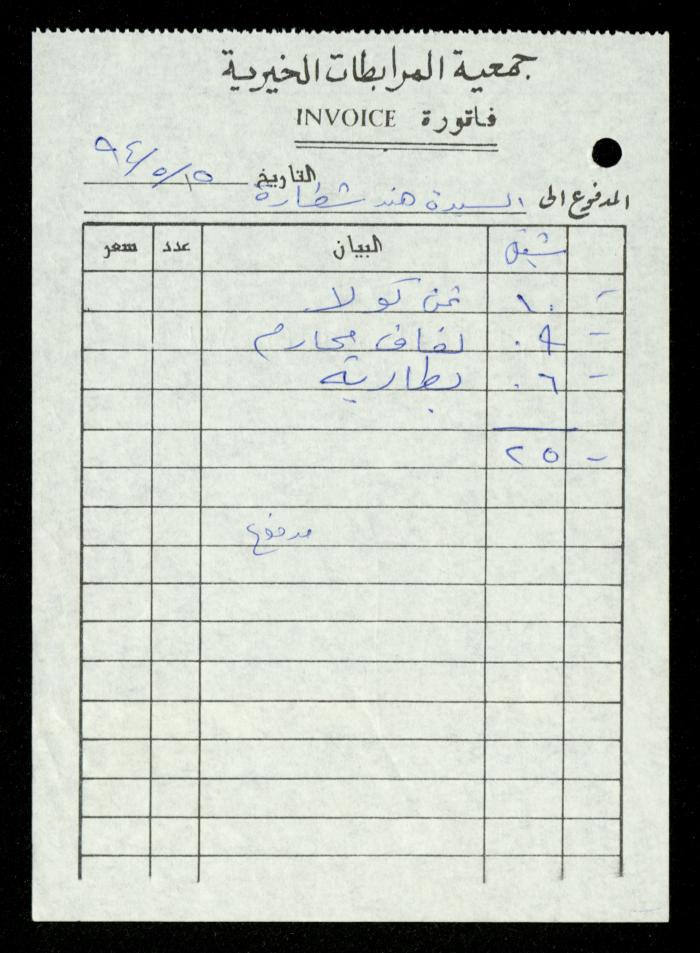 جمعية المرابطات الخيرية
فاتورة INVOICE
التاريخ ١٥/٥/٩٤
المدفوع الى السيدة هند شطارة
شيقل البيان عدد سعر
- ١٠ ثمن كولا
- ٠٩ لفاف محارم
- ٠٦ بطارية
- ٢٥
مدفوع